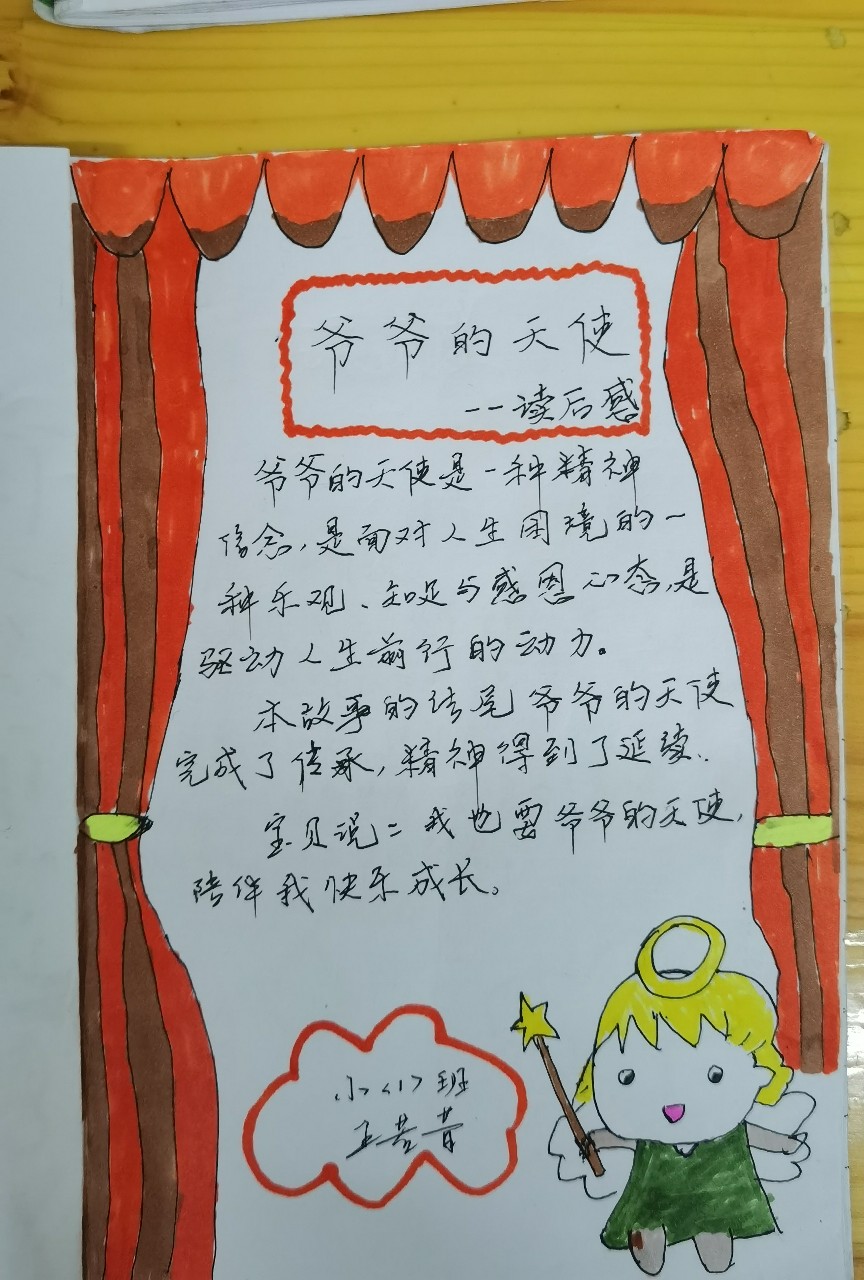 爷爷的天使
--读后感
爷爷的天使是一种精神
信念,是面对人生困境的一
种乐观、知足与感恩心态,是
驱动人生前行的动力。
本故事的结尾爷爷的天使
完成了传承,精神得到了延续.
宝贝说:我也要爷爷的天使,
陪伴我快乐成长。
小<1>班